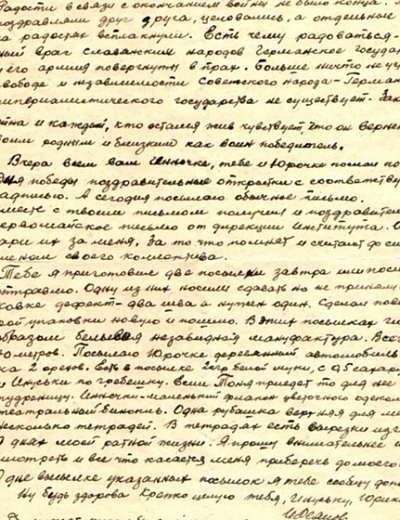 Радости в связи с окончанием войны не было конца.
поздравляли друг друга, целовались, а отдельные
на радостях всплакнули. Есть чему радоваться-
ный враг Славянских народов Германское государ
и его армия повергнуты в прах. Больше никто не
свободе и независимости Советского народа- Герман
империалистического государства не существует-
война и каждый, кто остался жив чувствует, что он верне
своим родным и близким как воин победитель.
Вчера всем вам Инночке, тебе и Юрочке послал по
дня победы поздравительные открытки с соответству
надписью. А сегодня посылаю обычное письмо.
вместе с твоим письмом получил и поздравител
первомайское письмо от дирекции Института.
за меня, за то что помнят и считают до сих
членом своего коллектива.
Тебе я приготовил две посылки завтра или посл
отправлю. Одну из них носили сдавать но не приняли.
ковке дефект- два шва а нужен один. Сделал пов
упаковки новую и пошлю. В этих посылках гл
образом бельевая незавидная мануфактура. Все
метров. Посылаю Юрочке деревянный автомобиль
ка 2 орехов. Есть в посылке 2 кгр белой муки, с 0,5 сахар
и Инуськи по гребешку. Если Тоня приедет то для нее
пудреницу. Инночки- маленький флакон цветочного одекол
театральный бинокль. Одна рубашка верхняя для ме
несколько тетрадей. В тетрадях есть вырезки из г
о днях моей ратной жизни. Я прошу внимательнее
смотреть и все что касается меня приберечь до моего
О дне высылке указанных посылок я тебе сообщу допо
Ну будь здорова Крепко целую тебя, Инуську, Юрик